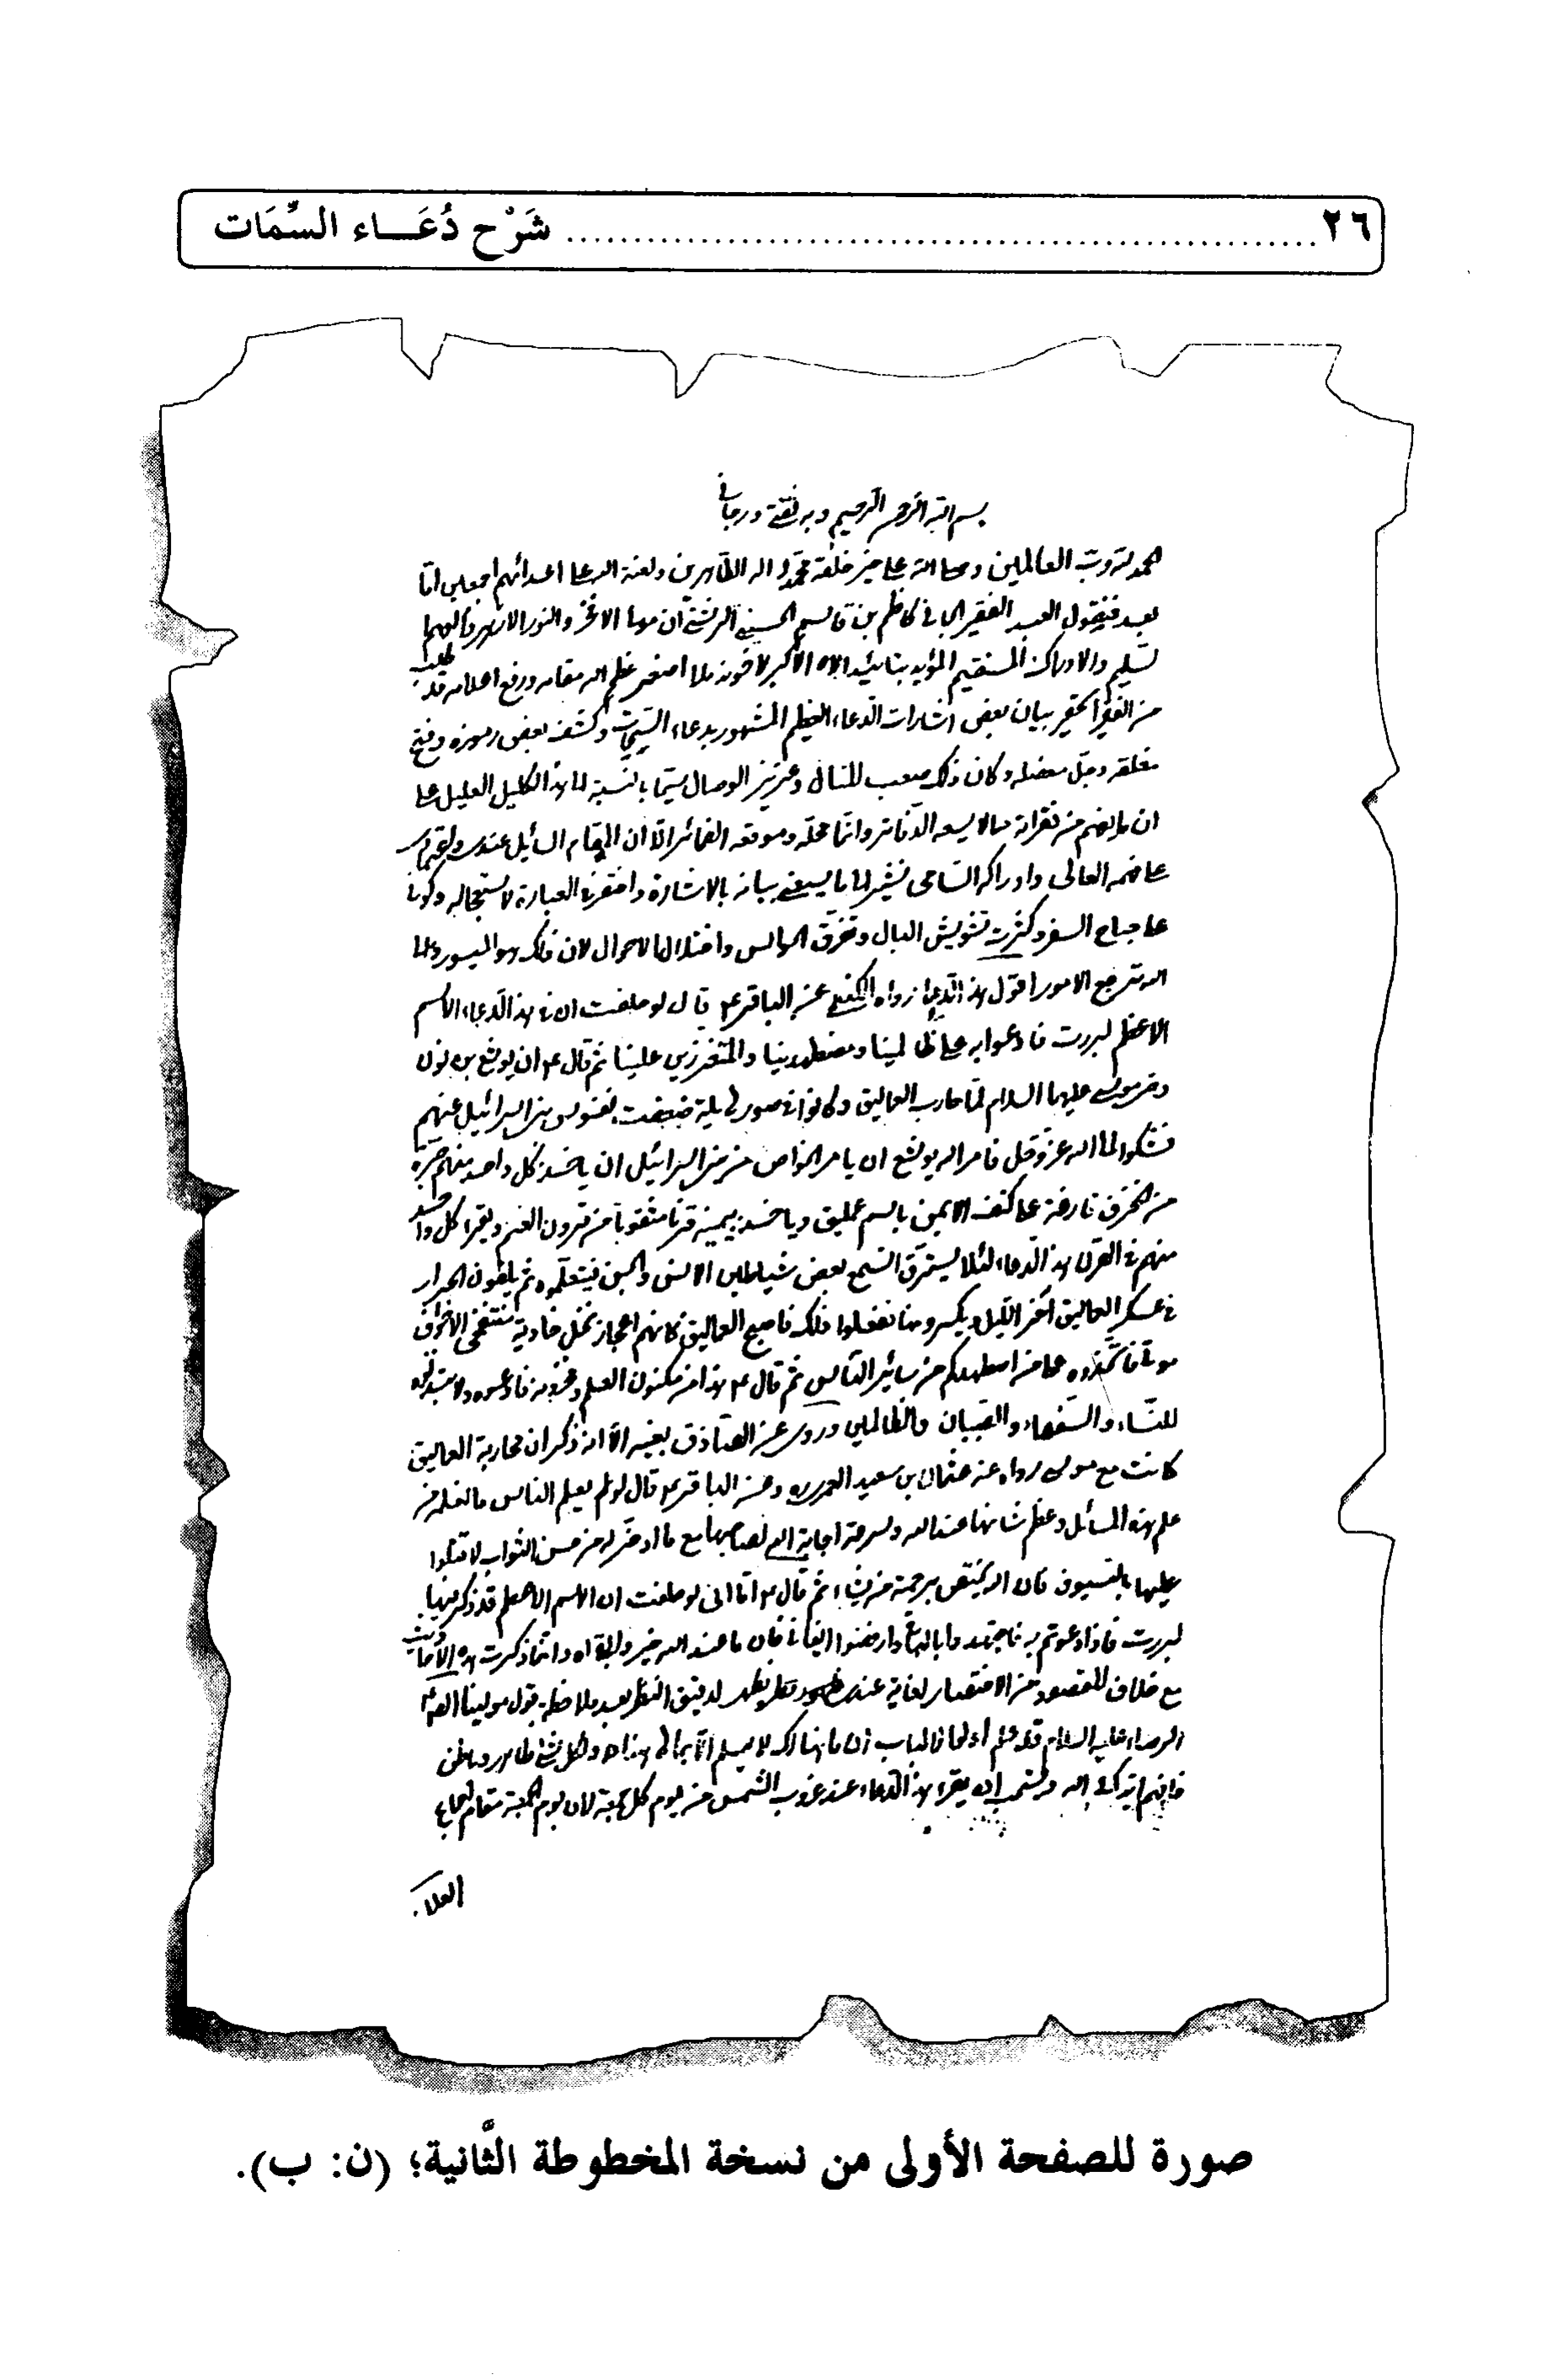 ٢٦ ........................................................ شَرْح دُعَـــاء السِّمَات
بسم الله الرحمن الرحيم وبه ثقتي ورجائي
الحمد لله رب العالمين وصلى الله على خير خلقه محمد واله الطاهرين ولعنة الله على اعدائهم اجمعين اما
بعد فيقول العبد الفقير الجاني كاظم بن قاسم الحسيني الرشتي ان مولانا الافخر والنور الازهر والفهم
السليم والادراك المستقيم المؤيد بتأييد الاله الأكبر الاخوند ملا اصغر عظم الله مقامه ورفع اعلامه قد طلب
من الفقير الحقير بيان بعض اشارات الدعاء العظيم المشهور بدعاء السمات وكشف بعض رموزه وفتح
مغلقه وحل معضله وكان ذلك صعب المنال وعزيز الوصال سيما بالنسبة الى هذا الكليل العليل على
ان ما يفهم من فقراته مما لا يسعه الدفاتر وانما محله وموقعه الضمائر الا ان المقام السائل عندي
على فهمه العالي وادراكه السامي نشير الى ما يسعني بيانه بالاشارة واختصر في العبارة لاستعجاله وكوننا
على جناح السفر وكثرت تشويش البال وتفرق الحواس واختلال الاحوال لان ذلك هو الميسور والى
الله ترجع الامور اقول هذا الدعاء رواه الكفعمي عن الباقر ع قال لو حلفت ان في هذا الدعاء الاسم
الاعظم لبررت فادعوا به على ظالمينا ومضطهدينا والمتعززين علينا ثم قال ع ان يوشع بن نون
وصي موسى عليهما السلام لما حارب العماليق وكانوا في صور هايلة ضعفت نفوس بني اسرائيل عنهم
فشكوا الى الله عز وجل فامر الله يوشع ان يامر الخواص من بني اسرائيل ان ياخذ كل واحد منهم جرة
من الخزف فارغة على كتفه الايسر باسم عمليق وياخذ بيمينه قرنا مثقوبا من قرون الغنم ويقرء كل واحد
منهم في القرن هذا الدعاء لئلا يسترق السمع بعض شياطين الانس والجن فيتعلموه ثم يلقون الجرار
في عسكر العماليق اخر الليل ويكسرونها ففعلوا ذلك فاصبح العماليق كانهم اعجاز نخل خاوية منتفخي الاجواف
موتى فاتخذوه على من اضطهدكم من سائر الناس ثم قال ع هذا من مكنون العلم ومخزونه فادعوه ولا تبذلوه
للنساء والسفهاء والصبيان والظالمين وروي عن الصادق بعينه الا انه ذكر ان محاربة العماليق
كانت مع موسى رواه عنه عثمان بن سعيد العمري وعن الباقر ع قال لو يعلم الناس ما نعلمه من
علم هذه المسائل وعظم شانها عند الله وسرعة اجابة الله لصاحبها مع ما ادخر له من حسن الثواب لاقتتلوا
عليها بالسيوف فان الله يختص برحمته من يشاء ثم قال ع اما اني لو حلفت ان الاسم الاعظم قد ذكر فيها
لبررت فاذا دعوتم به فاجتهدوا بالدعاء وارفضوا الفاني فان ما عند الله خير وابقى اه وانما ذكرت هذه الاحاديث
مع خلاف المقصود من الاختصار لغاية عندي تظهر لدقيق النظر بعد ملاحظة قول مولينا
الرضا عليه السلام قد علم اولوا الالباب ان ما هنالك لا يعلم الا بما في هذا وكل شئ ظاهر وباطن
فافهم ايدك الله ويستحب ان يقرء هذا الدعاء عند غروب الشمس من يوم كل جمعة لان يوم الجمعة مقام اجتماع
العلا
صورة للصفحة الأولى من نسخة المخطوطة الثَّانية؛ (ن: ب).